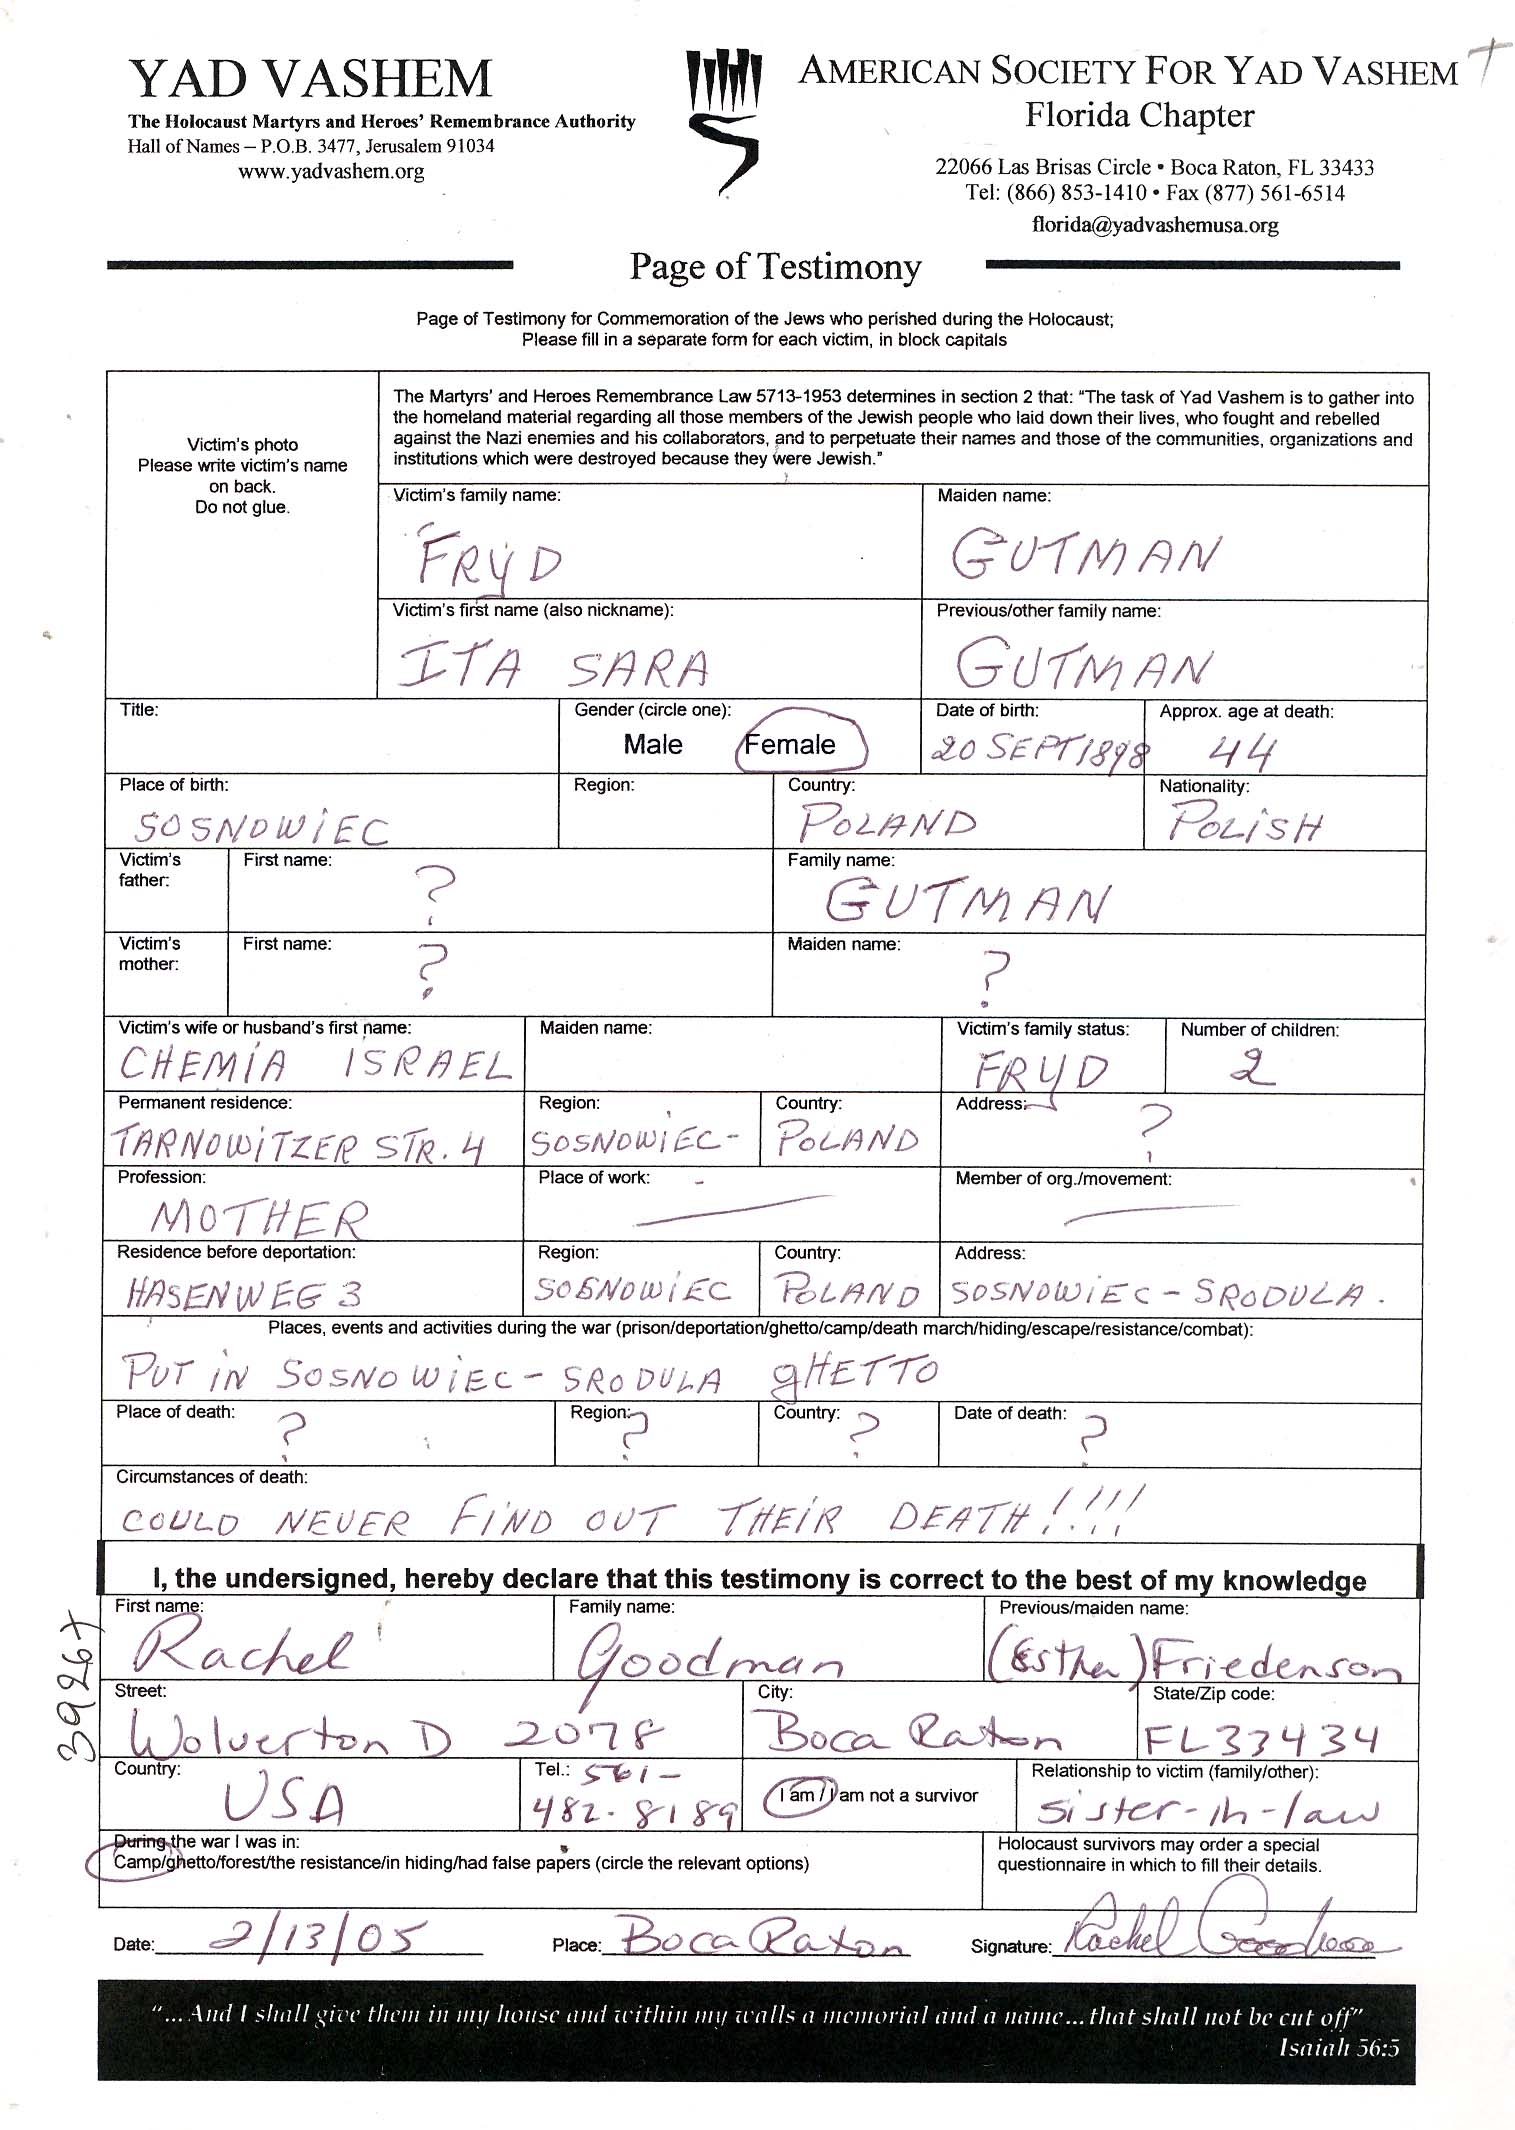 YAD VASHEM
The Holocaust Martyrs and Heroes' Remembrance Authority
Hall of Names – P.O.B. 3477, Jerusalem 91034
www.yadvashem.org
AMERICAN SOCIETY FOR YAD VASHEM
Florida Chapter
22066 Las Brisas Circle • Boca Raton, FL 33433
Tel: (866) 853-1410 • Fax (877) 561-6514
florida@yadvashemusa.org
Page of Testimony
Page of Testimony for Commemoration of the Jews who perished during the Holocaust;
Please fill in a separate form for each victim, in block capitals
Victim's photo
Please write victim's name
on back.
Do not glue.
The Martyrs' and Heroes Remembrance Law 5713-1953 determines in section 2 that: "The task of Yad Vashem is to gather into
the homeland material regarding all those members of the Jewish people who laid down their lives, who fought and rebelled
against the Nazi enemies and his collaborators, and to perpetuate their names and those of the communities, organizations and
institutions which were destroyed because they were Jewish."
Victim's family name: Maiden name:
FRYD GUTMAN
Victim's first name (also nickname): Previous/other family name:
ITA SARA GUTMAN
Title: Gender (circle one): Date of birth: Approx. age at death:
Male Female 20 SEPT 1898 44
Place of birth: Region: Country: Nationality:
SOSNOWIEC POLAND POLISH
Victim's father: First name: Family name:
? GUTMAN
Victim's mother: First name: Maiden name:
? ?
Victim's wife or husband's first name: Maiden name: Victim's family status: Number of children:
CHEMIA ISRAEL FRYD 2
Permanent residence: Region: Country: Address:
TARNOWITZER STR. 4 SOSNOWIEC- POLAND ?
Profession: Place of work: Member of org./movement:
MOTHER
Residence before deportation: Region: Country: Address:
HASENWEG 3 SOSNOWIEC POLAND SOSNOWIEC - SRODULA.
Places, events and activities during the war (prison/deportation/ghetto/camp/death march/hiding/escape/resistance/combat):
PUT IN SOSNOWIEC - SRODULA gHETTO
Place of death: Region: Country: Date of death:
? ? ? ?
Circumstances of death:
COULD NEVER FIND OUT THEIR DEATH!!!!
I, the undersigned, hereby declare that this testimony is correct to the best of my knowledge
First name: Family name: Previous/maiden name:
Rachel Goodman (Esther) Friedenson
Street: City: State/Zip code:
Wolverton D 2078 Boca Raton FL 33434
Country: Tel.: 561- Relationship to victim (family/other):
USA 482-8189 I am / I am not a survivor sister-in-law
During the war I was in:
Camp/ghetto/forest/the resistance/in hiding/had false papers (circle the relevant options)
Holocaust survivors may order a special
questionnaire in which to fill their details.
Date: 2/13/05 Place: Boca Raton Signature: Rachel Goodman
"...And I shall give them in my house and within my walls a memorial and a name...that shall not be cut off"
Isaiah 56:5